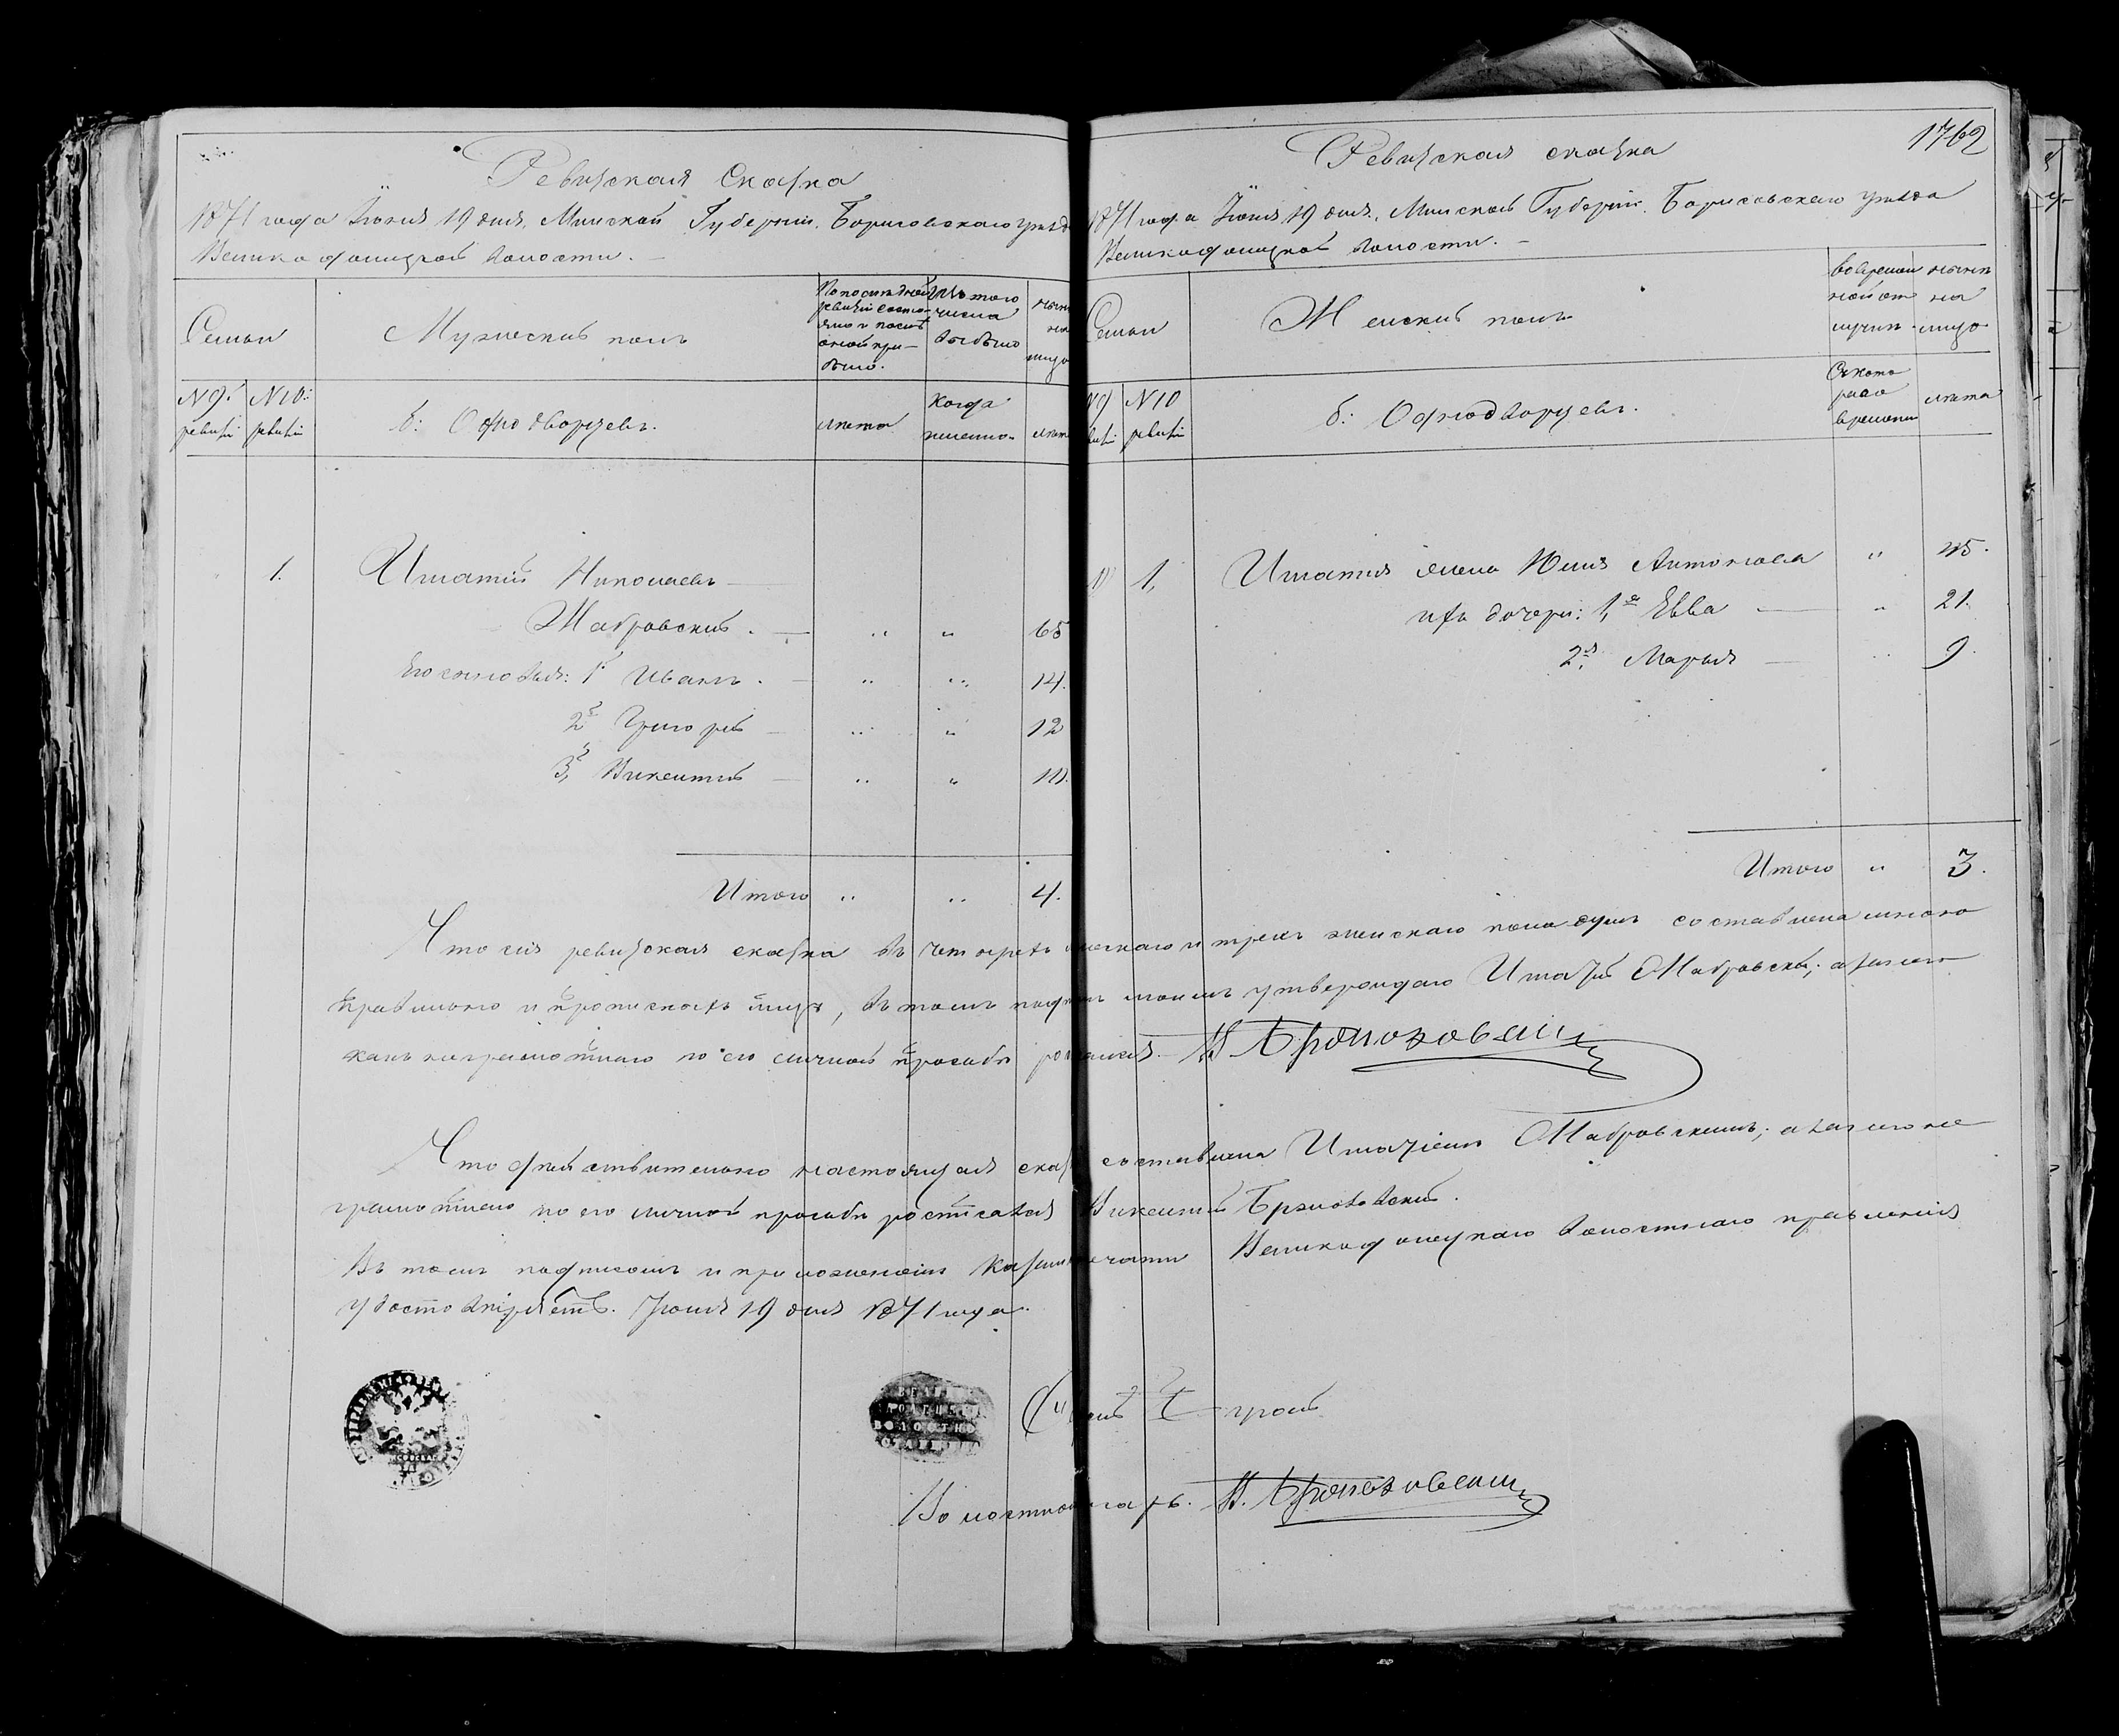 Ревизская Сказка
1871 года Іюня 19 дня, Минской Губерніи, Борисовскаго уѣзда
Великодолецкой волости.
Семьи
Мужескій полъ
По послѣдней ревизіи состояло и послѣ оной прибыло.
Изъ того числа выбыло
нынѣ на лицо
№ 9. ревизіи
№ 10: ревизіи
б: Однодворцевъ.
лѣта
Когда именно.
лѣта
1. Игнатій Николаевъ
Жабровскій. " " 65
Его сыновья: 1й Иванъ. " " 14.
2й Григорій " " 12
3й Викентій " " 10.
Итого " " 4.
1762
Ревизская сказка
1871 года Іюня 19 дня, Минской Губерніи, Борисовскаго уѣзда
Великодолецкой волости.
Семьи
Женскій полъ
во временной отлучкѣ
нынѣ на лицо
№ 9 ревизіи
№ 10 ревизіи
б: Однодворцевъ.
Съ котораго времени
лѣта
1. Игнатія жена Юлія Антонова " 45.
ихъ дочери: 1я Евва " 21.
2я Марья " 9.
Итого " 3.
Что сія ревизская сказка въ четырехъ мужескаго и трехъ женскаго пола душъ составлена мною
правильно и прописныхъ нѣтъ, въ томъ подписомъ моимъ утверждаю Игнатій Жабровскій; а за него
какъ неграмотнаго по его личной просьбѣ росписался В. Броновскій
Что дѣйствительно настоящая сказка составлена Игнатіемъ Жабровскимъ; а за него не
грамотнаго по его личной просьбѣ росписался Викентій Броновскій.
Въ томъ подписомъ и приложеніемъ Казенной печати Великодолецкаго волостнаго правленія
удостовѣряетъ. Іюня 19 дня 1871 года.
Волостной писарь. В. Броновскій